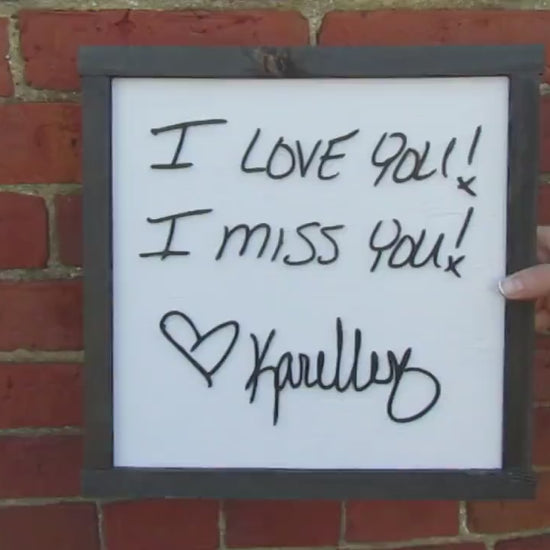 I LOVE YOU!
I MISS YOU!
♡